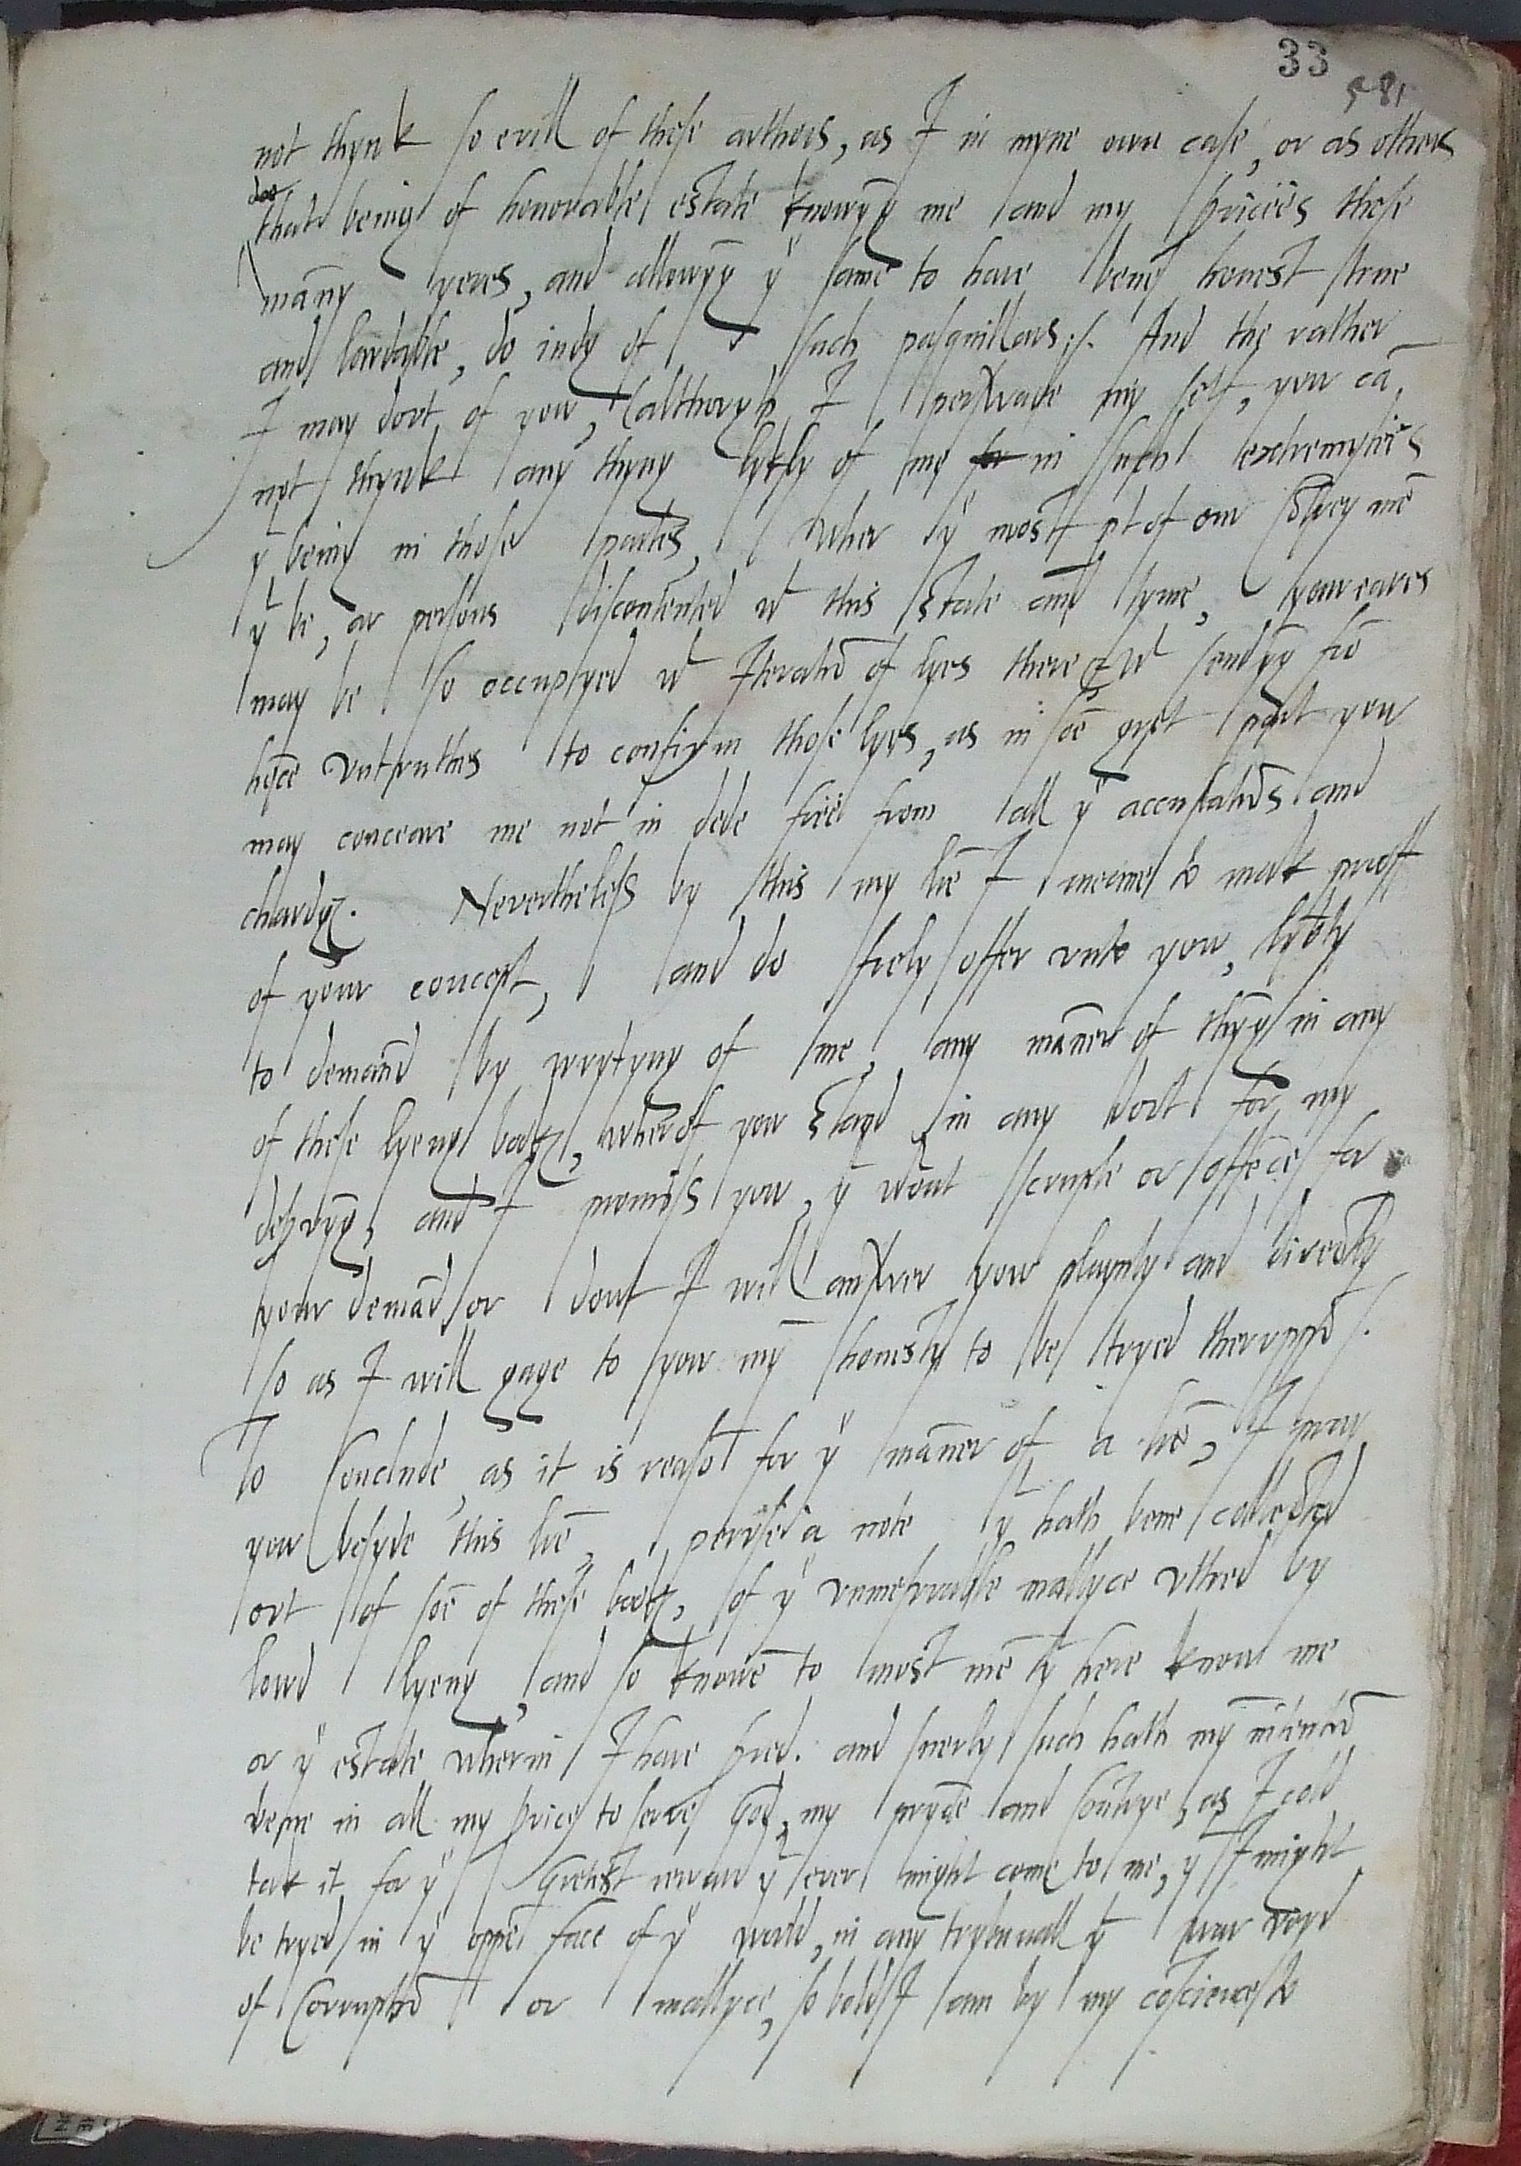 33
581
not thynk so evill of these authors, as I in myne own case, or as others
doo
that being of honorable estate knowyng me and my srvicees these
many yeres, and allowyng yͤ same to have bene honest true
and laudable, do indg of such pasquillars ./. And the rather
I may dovt of yow, (althovgh I perswade my self, yow cā
not thynk any thyng lykly of me for in such extremyties
yͭ being in those partes, wher yͤ most pt of our cōtrey mē
yͭ be, ar persons discontented wͭ this state and tyme, your eares
may be so occupyed wͭ Iteratiō of lyes there & wͭ sendyng frō
hēce vntruthes to confirm those lyes, as in sōe gret part yow
may conceave me not in dede free from all yͤ accusatiōs and
chardgs. Nevertheless by this my lr̄e I meane to mak proff
of your concept, and do frely offer unto yow, lib̄tly
to demand by wrytyng of me, any maner of thyng in any
of these lyeng books, wherof yow stand in any dovt for my
, and I promiss yow, yͭ wͭout scruple or offēce for
your demād or dout I will answer yow playnly and directly
so as I will gage to yow my honesty to be tryed thervppō ./.
To conclude, as it is reasō for yͤ maner of a lr̄e, I pray
yow besyde this lr̄e, peruse a note yͭ hath bene collected
ovt of sōe of these books, of yͤ vnmesurable mallyce vttred by
lowd lyeng, and so knowē to most mē yͭ here know me
or yͤ estate wherin I have lived. and suerly such hath my intentiō
bene in all my srvice to serve God, my prynce and Coūtrye, as I cold
tak it for yͤ gretest reward yͭ ever might come to me, yͭ I might
be tryed in yͤ oppē face of yͤ world, in any trybunall yͭ war voyd
of Corruptiō or mallyce, so bold I am by my cōscience to